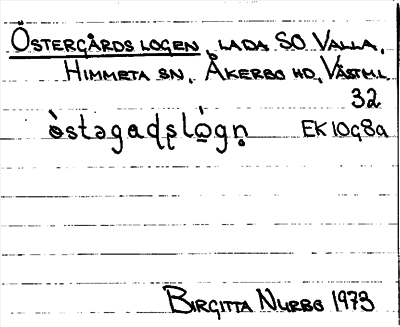 ÖSTERGÅRDSLOGEN, LADA SO VALLA,
HIMMETA SN, ÅKERBO HD, VÄSTML.
32
ò̀stəgadșlò̱gṇ EK 10g8a
BIRGITTA NURBO 1973